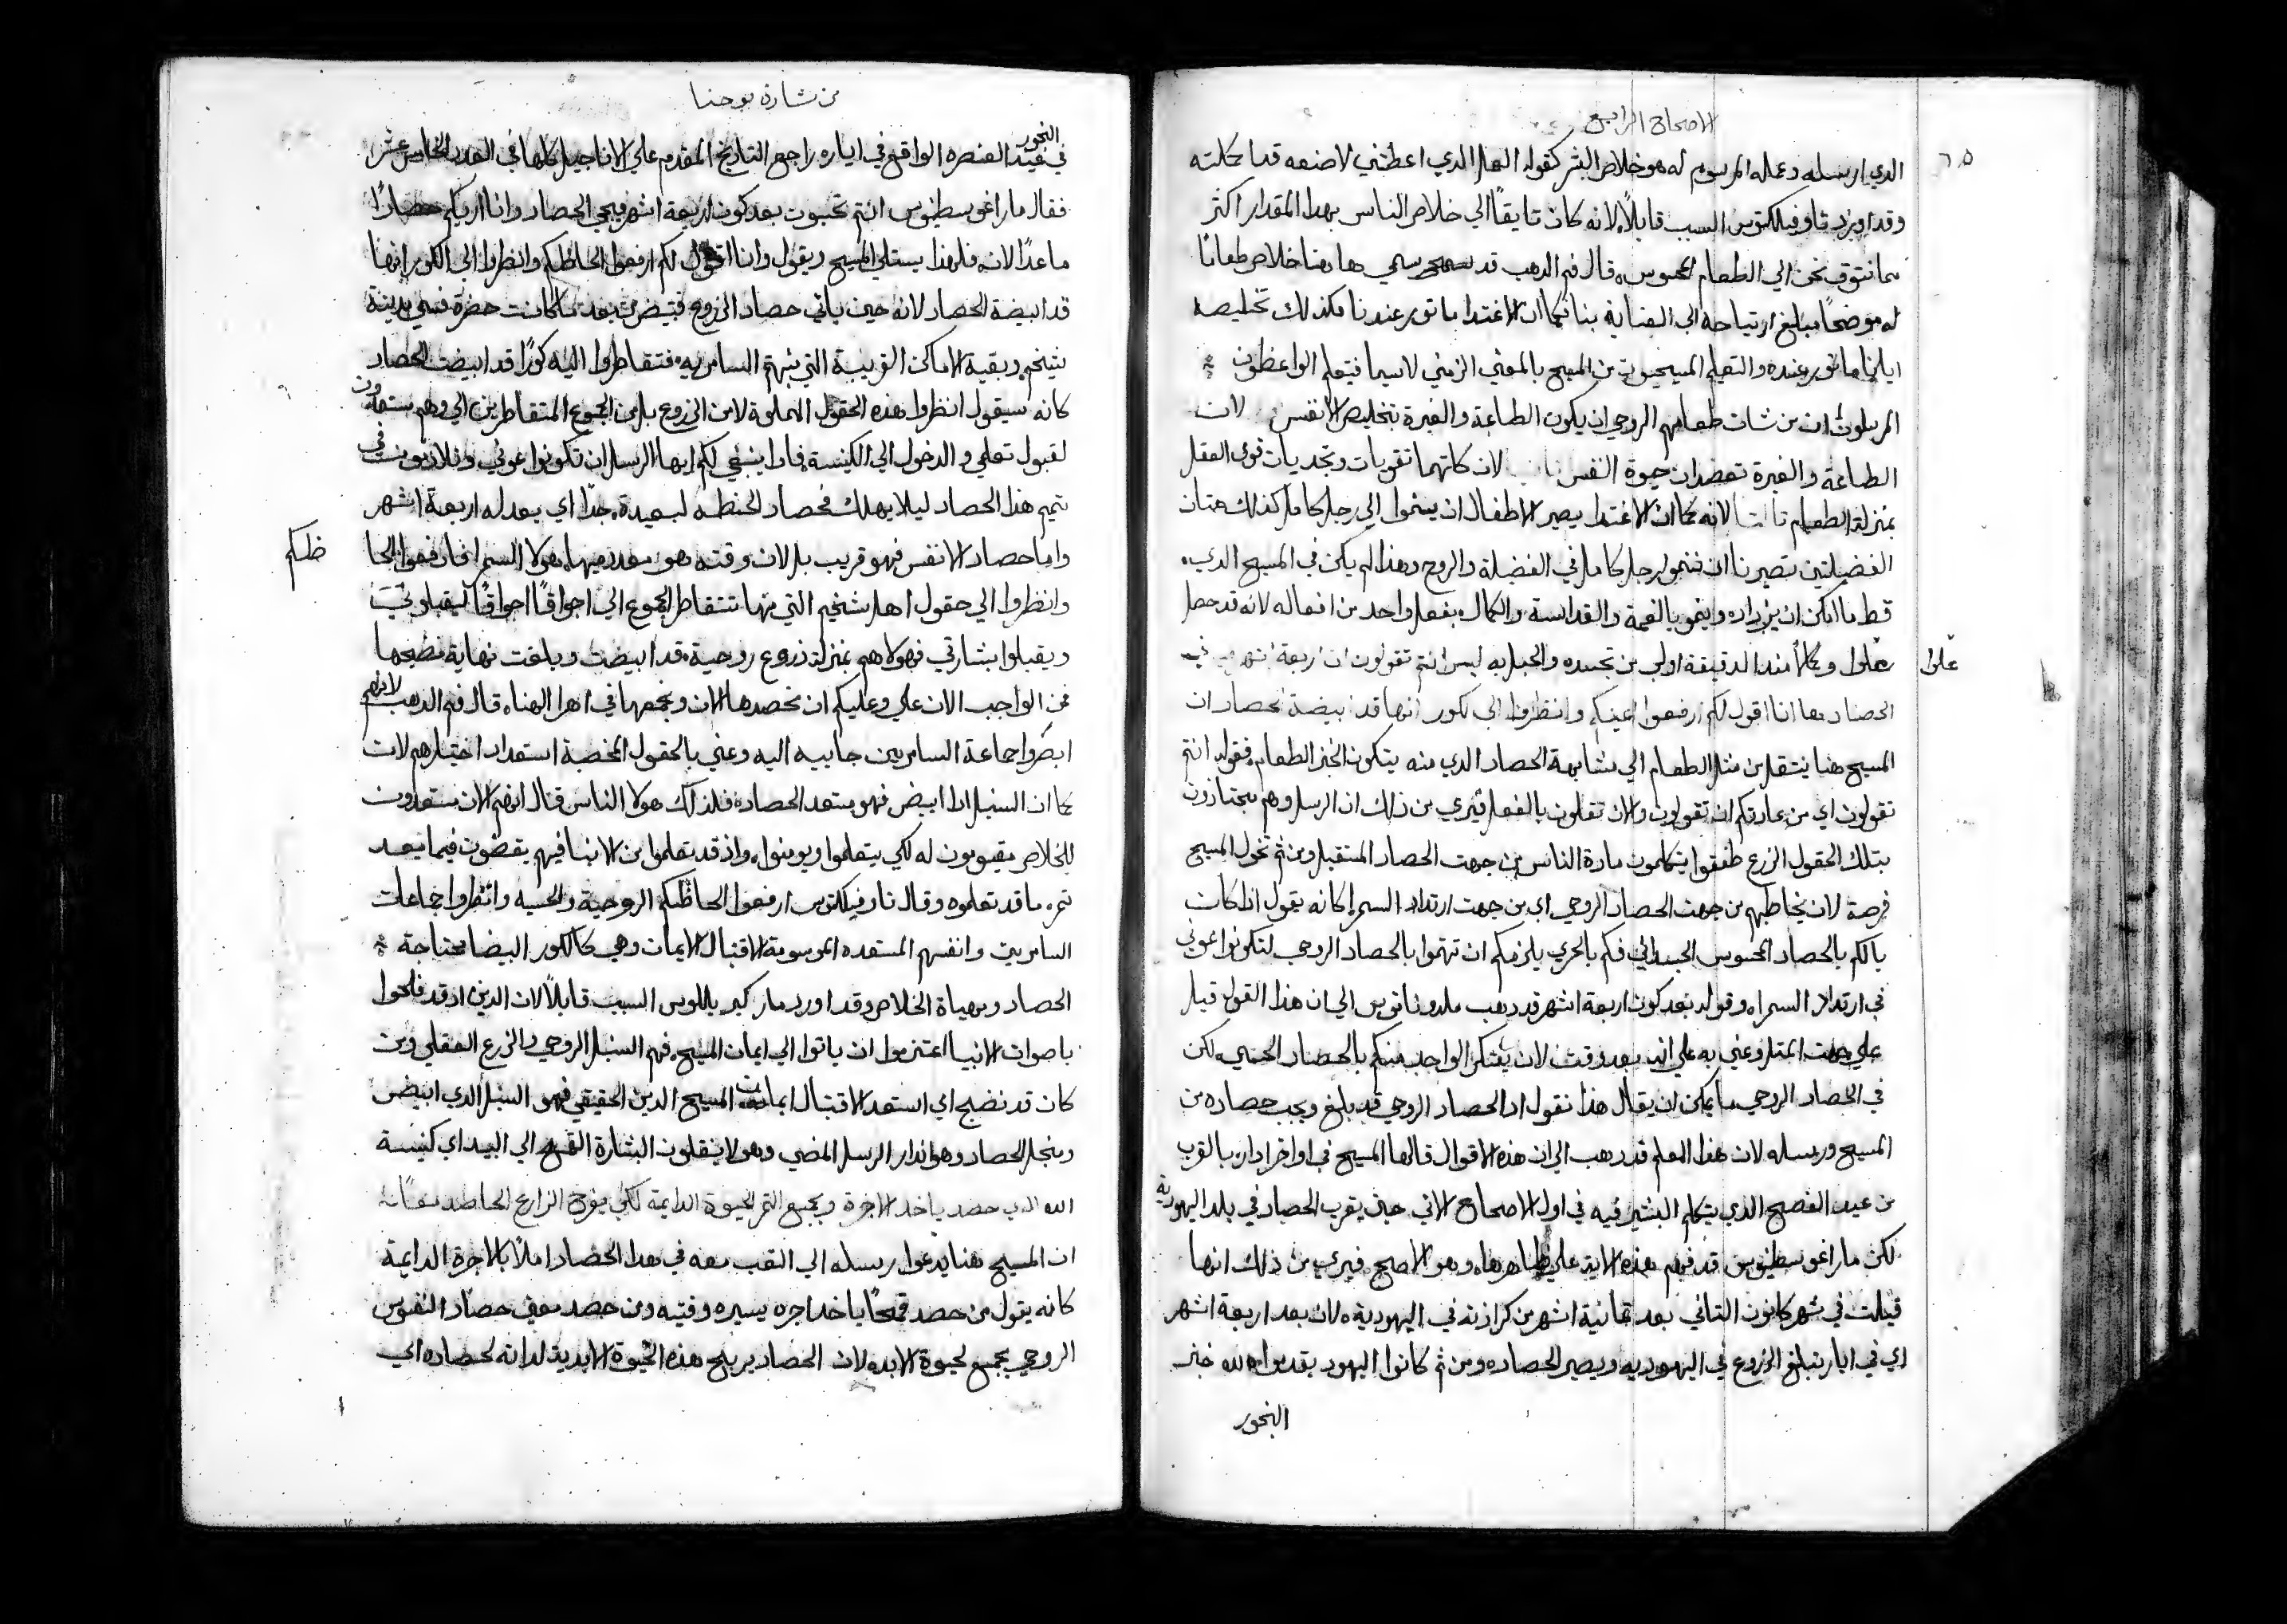 الاصحاح الرابع
٦٥
الدي ارسله وعمله المرسوم له هو خلاص البشر كقوله العمل الدي اعطتني لاصنعه قد اكملته
وقد اورد تاوفيلكتوس السبب قايلاً لانه كان تايقاً الي خلاص الناس بهدا المقدار اكثر
مما نتوق نحن الي الطعام المحسوس. قال فم الدهب قد سمي هاهنا خلاص طعامًا
له موضحاً مبلغ ارتياحه الي العنايه بنا كما ان الاغتدا ماتور عندنا فكذلك تخليصه
ايانا ماتور عنده والتعليم المسيحيون من المسيح بالمعني الزمني لاسيما فيتعلم الواعظون
المرسلون ان من شان طعامهم الروحي ان يكون الطاعة والغيرة بتخليص الانفس لان
الطاعة والغيرة تعضدان حيوة النفس لان كلتهما تقويات وتجديات قوي العقل
بمنزلة الطعام لانه كما ان الاغتدا يصير الاطفال ان ينموا الي رجل كامل كذلك هتان
الفضيلتين تصيرنا ان ننمو لرجل كامل في الفضيلة والروح وهدا لم يكن في المسيح الدي
قط ما امكن ان يزداد وينمو بالنعمة والقداسة والكمال بفعل واحد من افعاله لانه قد حصل
علوا وكمالاً مند الدقيقة اولي من تجسده والحبل به ليس انتم تقولون ان اربعة اشهر
علوا
الحصاد هاانا اقول لكم ارفعوا اعينكم وانظروا الي الكور انها قد ابيضة لحصاد ان
المسيح هنا ينتقل من مثل الطعام الي مشابهة الحصاد الدي منه يتكون الخبز الطعام. فقوله انتم
تقولون اي من عادتكم ان تقولون والان تقلون بالفعل فيري من ذلك ان الرسل وهم مجتازون
بتلك الحقول الزرع طفقوا يتكلمون مادة الناس من جهت الحصاد المستقبل ومن ثم تخول المسيح
فرصة لان يخاطبهم من جهت الحصاد الروحي اي من جهت ارتداد السمرا كانه يقول اذا كان
بالكم بالحصاد المحسوس الجسداني فكم بالحري يلزمكم ان تهتموا بالحصاد الروحي لتكونوا عوني
في ارتداد السمراه وقوله بعد كون اربعة اشهر قد دهب ملدوناتوس الي ان هذا القول قيل
علي جهت المتل وعني به علي انه بعد وقت لان يفتكر الواحد منكم بالحصاد الحسي لكن
في الحصاد الروحي ما يمكن ان يقال هذا نقول ان الحصاد الروحي قد بلغ ويجب حصاده من
المسيح ورسله لان هذا المعلم قد دهب الي ان هذه الاقوال قالها المسيح في اواخر ادار بالقرب
من عيد الفصح الذي يتكلم البشير فيه في اول الاصحاح الاتي حين يقرب الحصاد في بلد اليهودية
لكن مار اغوسطينوس قد فهم هذه الاية علي ظاهرها وهو الاصح فيري من ذلك انها
قيلت في شهر كانون التاني بعد تمانية اشهر من كرازته في اليهودية ه لان بعد اربعة اشهر
اي في ايار تبلغ الزروع في اليهوديه ويصير الحصاده ومن ثم كانوا اليهود يقدموا لله خبز
البخور
من بشارة يوحنا
البخور
في عيد العنصره الواقع في اياره راجع التاريخ المقدم علي الاناجيل كلها في العدد الخامس عشر
فقال مار اغوسطينوس انتم تحسبون بعد كون اربعة اشهر فيجي الحصاد وانا اريكم حصادًا
ماعدًا الان. فلهذا يستلي المسيح ويقول وانا اقول لكم ارفعوا الحاظكم وانظروا الي الكور انها
قد ابيضة الحصاد لانه حين ياتي حصاد الزروع فتبيض من بعد ما كانت خضرة فمن مدينة
شيخم وبقية الاماكن القريبة التي منهم السامريه فتقاطروا اليه كورًا قد ابيضت الحصاد
كانه سيقول انظروا هذه الحقول المملوة لا من الزروع بل من الجموع المتقاطرين الي وهم مستعدون
لقبول تعلمي والدخول الي الكنيسة. فادا ينبغي لكم ايها الرسل ان تكونوا عوني وتلازمون في
تتميم هذا الحصاد ليلا يهلك فحصاد الحنطه لبعيدة جدًا اي بعد له اربعة اشهر
واما حصاد الانفس فهو قريب بل لان وقته هو معدد مهيا. هولا السمرا فارفعوا الحا
ظكم
وانظروا الي حقول اهل شخيم التي منها تتقاطر الجموع الي اجواقًا اجواقًا ليقبلوني
ويقبلوا بشارتي فهولا هم بمنزلة زروع روحية. قد ابيضت وبلغت نهاية نضجها
فمن الواجب الان علي وعليكم ان نحصدها الان ونجمعها في اهرا الهنا. قال فم الدهب لانهم
ابصروا جماعة السامريين جاييه اليه وعني بالحقول المخصبة استعداد اختيارهم لان
كما ان السنبل ادا ابيض فهو مستعد الحصاده فلذلك هولا الناس قال انهم الان مستعدون
للخلاص مقبولون له لكي يتعلموا ويومنوا. واذ قد تعلموا من الانبيا فيهم يقضون فيما بعد
تمره ما قد تعلموه وقال تاوفيلكتوس ارفعوا الحاظكم الروحية والحسيه وانظروا جماعات
السامريين وانفسهم المستعده المرسومة لاقتبال الايمان وهي كالكور البيضا محتاجة
الحصاد ومهياة الخلاص وقد اورد مار كيرياللوس السبب قايلاً لان الدين اد قد فلحوا
باصوات الانبيا اعتزموا ان ياتوا الي ايمان المسيح. فهم السنبل الروحي والزرع العقلي ومن
كان قد نضج اي استعد لاقتبال ايمان المسيح الدين الحقيقي فهو السنبل الدي ابيض
ومنجل الحصاد وهو اندار الرسل المضي وهولا ينقلون البشارة القمح الي البيدر اي كنيسة
الله الدي حصد ياخد الاجرة ويجمع التمر لحيوة الدايمة لكي يفرح الزارع الحاصد معًا
ان المسيح هنا يدعوا رسله الي التعب معه في هدا الحصاد املاً بالاجرة الدايمة
كانه يقول من حصد قمحًا ياخد اجره يسيره وقتيه ومن حصد معي حصاد النفوس
الروحي يجمع لحيوة الابده لان الحصاد يربح هذه الحيوة الابدية لداته لحصاده اي